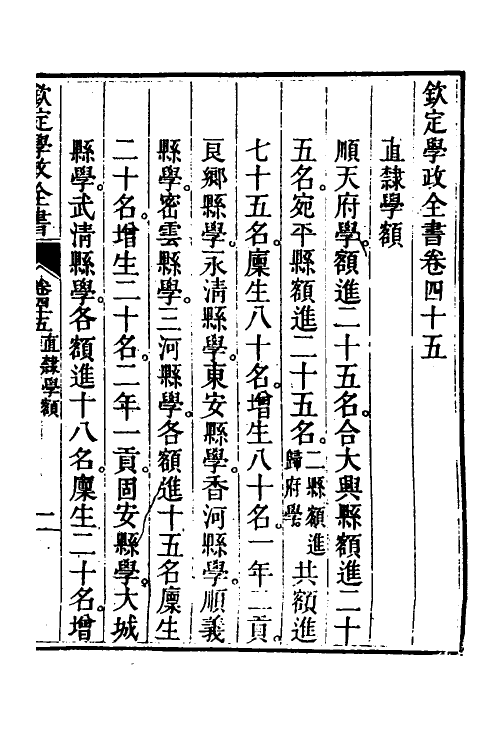 欽定學政全書卷四十五
直隸學額
順天府學額進二十五名。合大興縣額進二十
五名。宛平縣額進二十五名。二縣額進歸府學共額進
七十五名。廩生八十名。增生八十名。一年二貢。
良鄉縣學。永清縣學。東安縣學。香河縣學。順義
縣學。密雲縣學。三河縣學。各額進十五名。廩生
二十名。增生二十名。二年一貢。固安縣學。大城
縣學。武清縣學。各額進十八名。廩生二十名。增
欽定學政全書 卷四十五 直隸學額 一